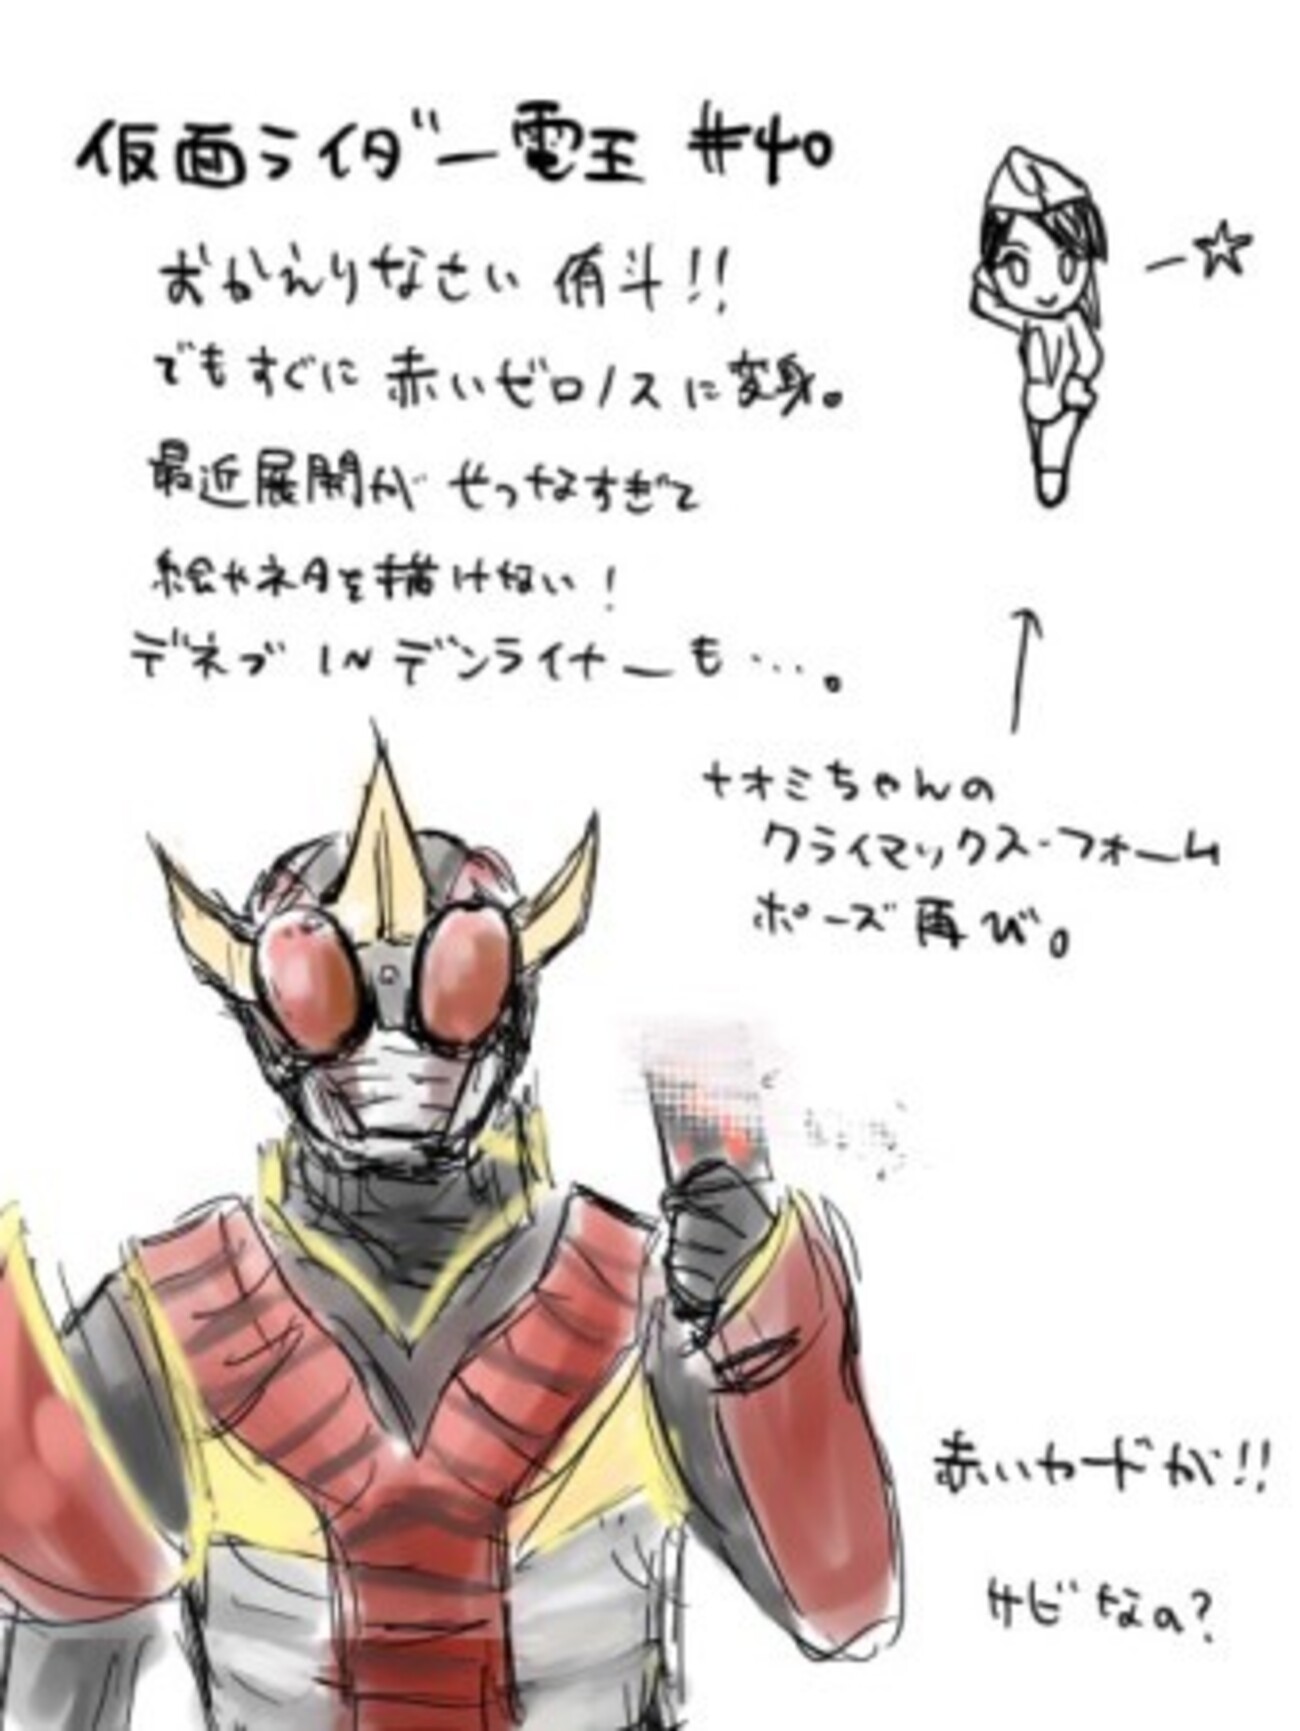 仮面ライダー電王 #40
おかえりなさい 侑斗!!
でもすぐに 赤いゼロノスに変身。
最近展開が せつなすぎて
絵やネタを描けない!
デネブ IN デンライナーも…。
ナオミちゃんの
クライマックス・フォーム
ポーズ 再び。
赤いカードが!!
サビなの?